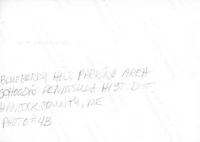 BLUEBERRY HILL PARKING AREA
SCHOODIC PENINSULA HIST. DIST.
HANCOCK COUNTY, ME
PHOTO #48